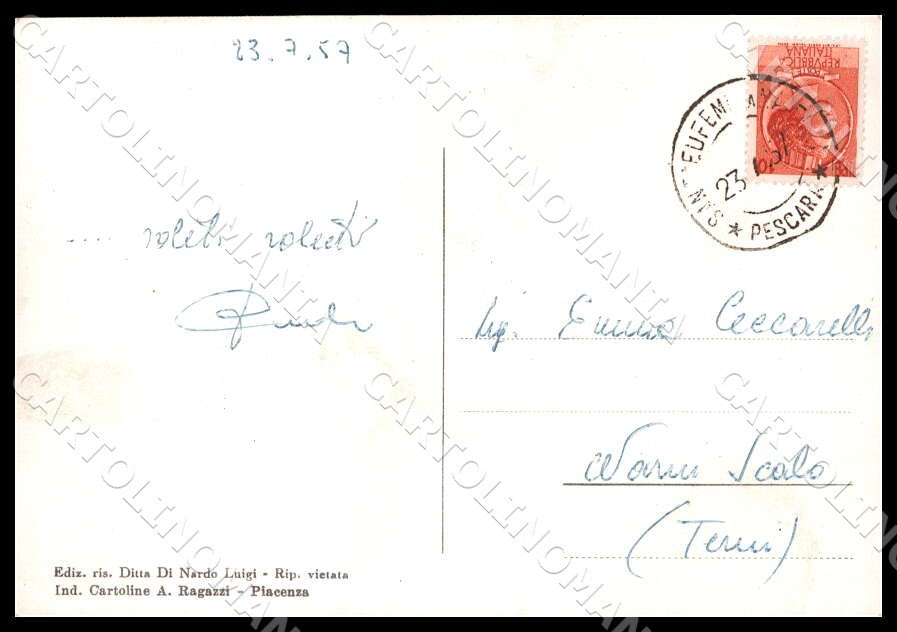 23.7.57
REPVBBLICA
ITALIANA
S. EUFEMIA
23
57
* PESCARA *
.... saluti saluti
Sig. Emma Ceccarelli
Narni Scalo
(Terni)
Ediz. ris. Ditta Di Nardo Luigi - Rip. vietata
Ind. Cartoline A. Ragazzi - Piacenza
CARTOLINOMANIA